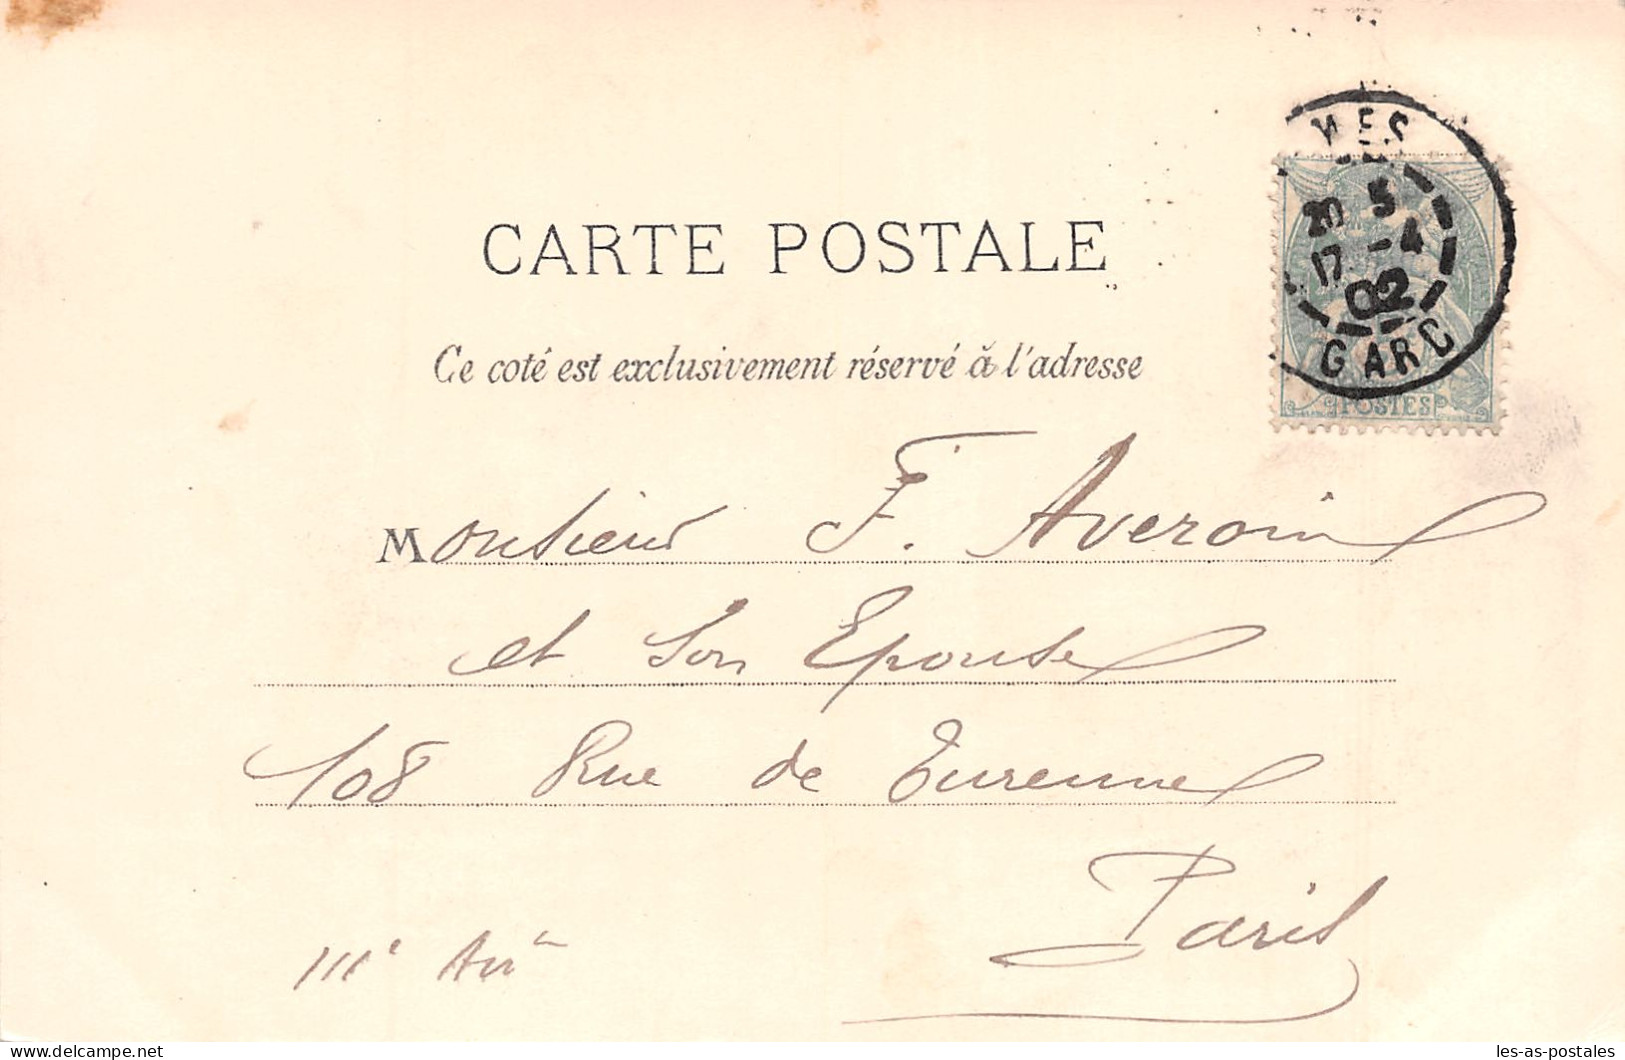 CARTE POSTALE
Ce coté est exclusivement réservé à l'adresse
MES
20 5
17 -4
02
GARD
POSTES
Monsieur F. Averoin
et Son Epouse
108 Rue de Turenne
Paris
IIIe Arr
delcampe.net
les-as-postales